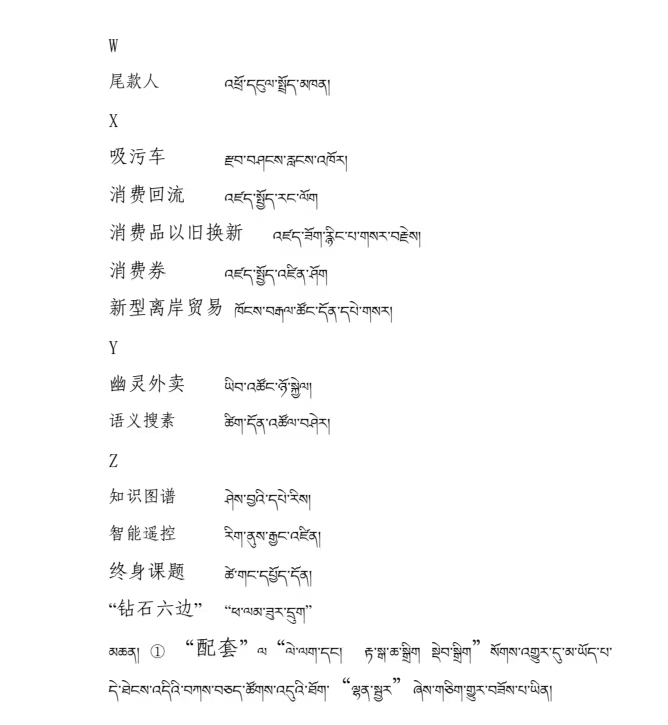 W
尾款人 འཕྲོ་དངུལ་སྤྲོད་མཁན།
X
吸污车 རྫབ་བཤངས་རླངས་འཁོར།
消费回流 འཛད་སྤྱོད་རང་ལོག
消费品以旧换新 འཛད་ཟོག་རྙིང་པ་གསར་བརྗེས།
消费券 འཛད་སྤྱོད་འཛིན་ཤོག
新型离岸贸易 ཁོངས་བརྒལ་ཚོང་དོན་དཔེ་གསར།
Y
幽灵外卖 ཡིབ་འཚོང་ཉོ་སྐྱེལ།
语义搜素 ཚིག་དོན་འཚོལ་བཤེར།
Z
知识图谱 ཤེས་བྱའི་དཔེ་རིས།
智能遥控 རིག་ནུས་རྒྱང་འཛིན།
终身课题 ཚེ་གང་དཔྱོད་དོན།
“钻石六边” “ཕ་ལམ་ཟུར་དྲུག”
མཆན། ① “配套”ལ “ལེ་ལག་དང། རྟ་སྒ་ཆ་སྒྲིག སྡེབ་སྒྲིག” སོགས་འགྱུར་དུ་མ་ཡོད་པ་
དེ་ཐེངས་འདིའི་བཀས་བཅད་ཚོགས་འདུའི་ཐོག་ “ལྷན་སྦྱར” ཞེས་གཅིག་གྱུར་བཟོས་པ་ཡིན།